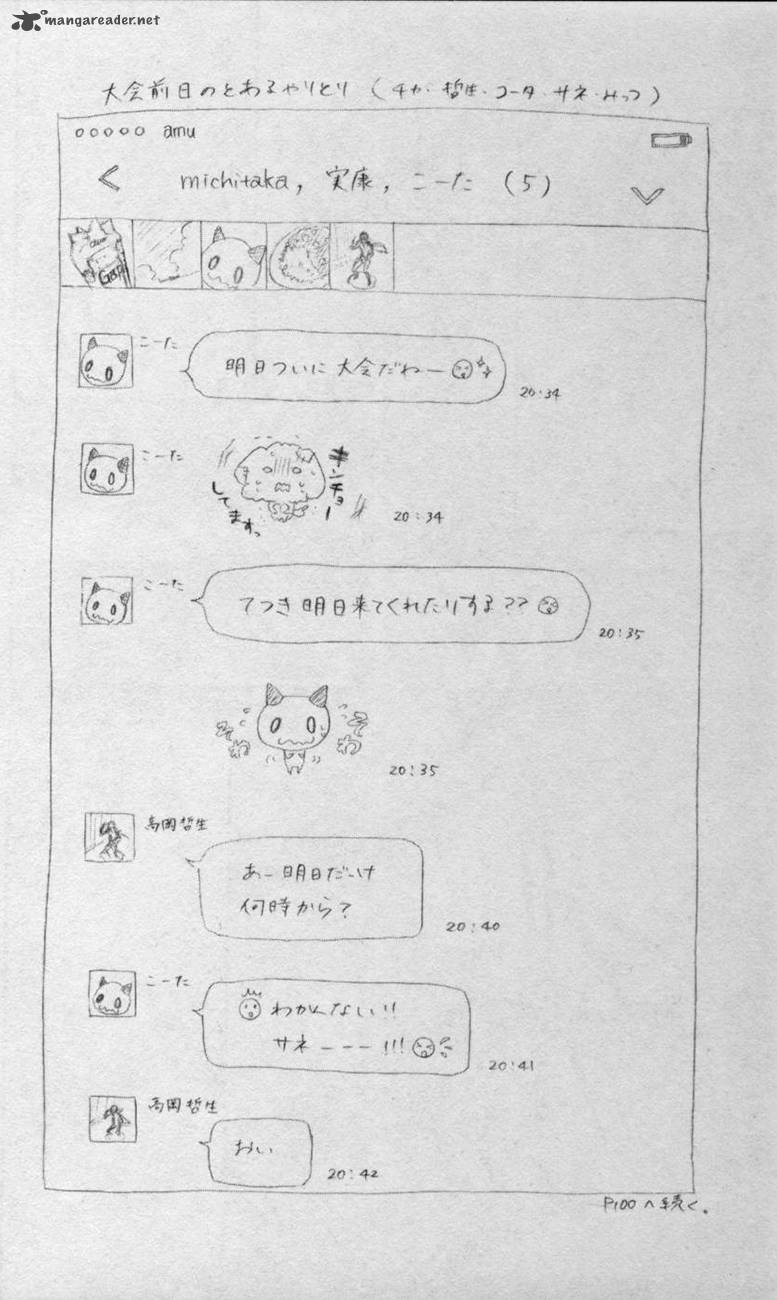 mangareader.net
大会前日のとあるやりとり(チカ・哲生・コータ・サネ・みっつ)
ooooo amu
< michitaka, 実康, こーた (5)
こーた
明日ついに大会だねー
20:34
こーた
キンチョー
してますっ
20:34
こーた
てつき明日来てくれたりする??
20:35
そわ
そわ
20:35
高岡哲生
あー明日だーけ
何時から?
20:40
こーた
わかんない!!
サネーーー!!!
20:41
高岡哲生
おい
20:42
P100へ続く。